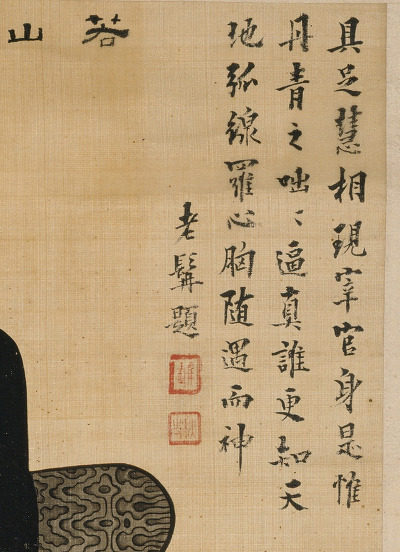 具足慧相現宰官身是惟
丹青之咄〻逼真誰更知天
地弧線羅心胸随遇而神
老髯題
若山